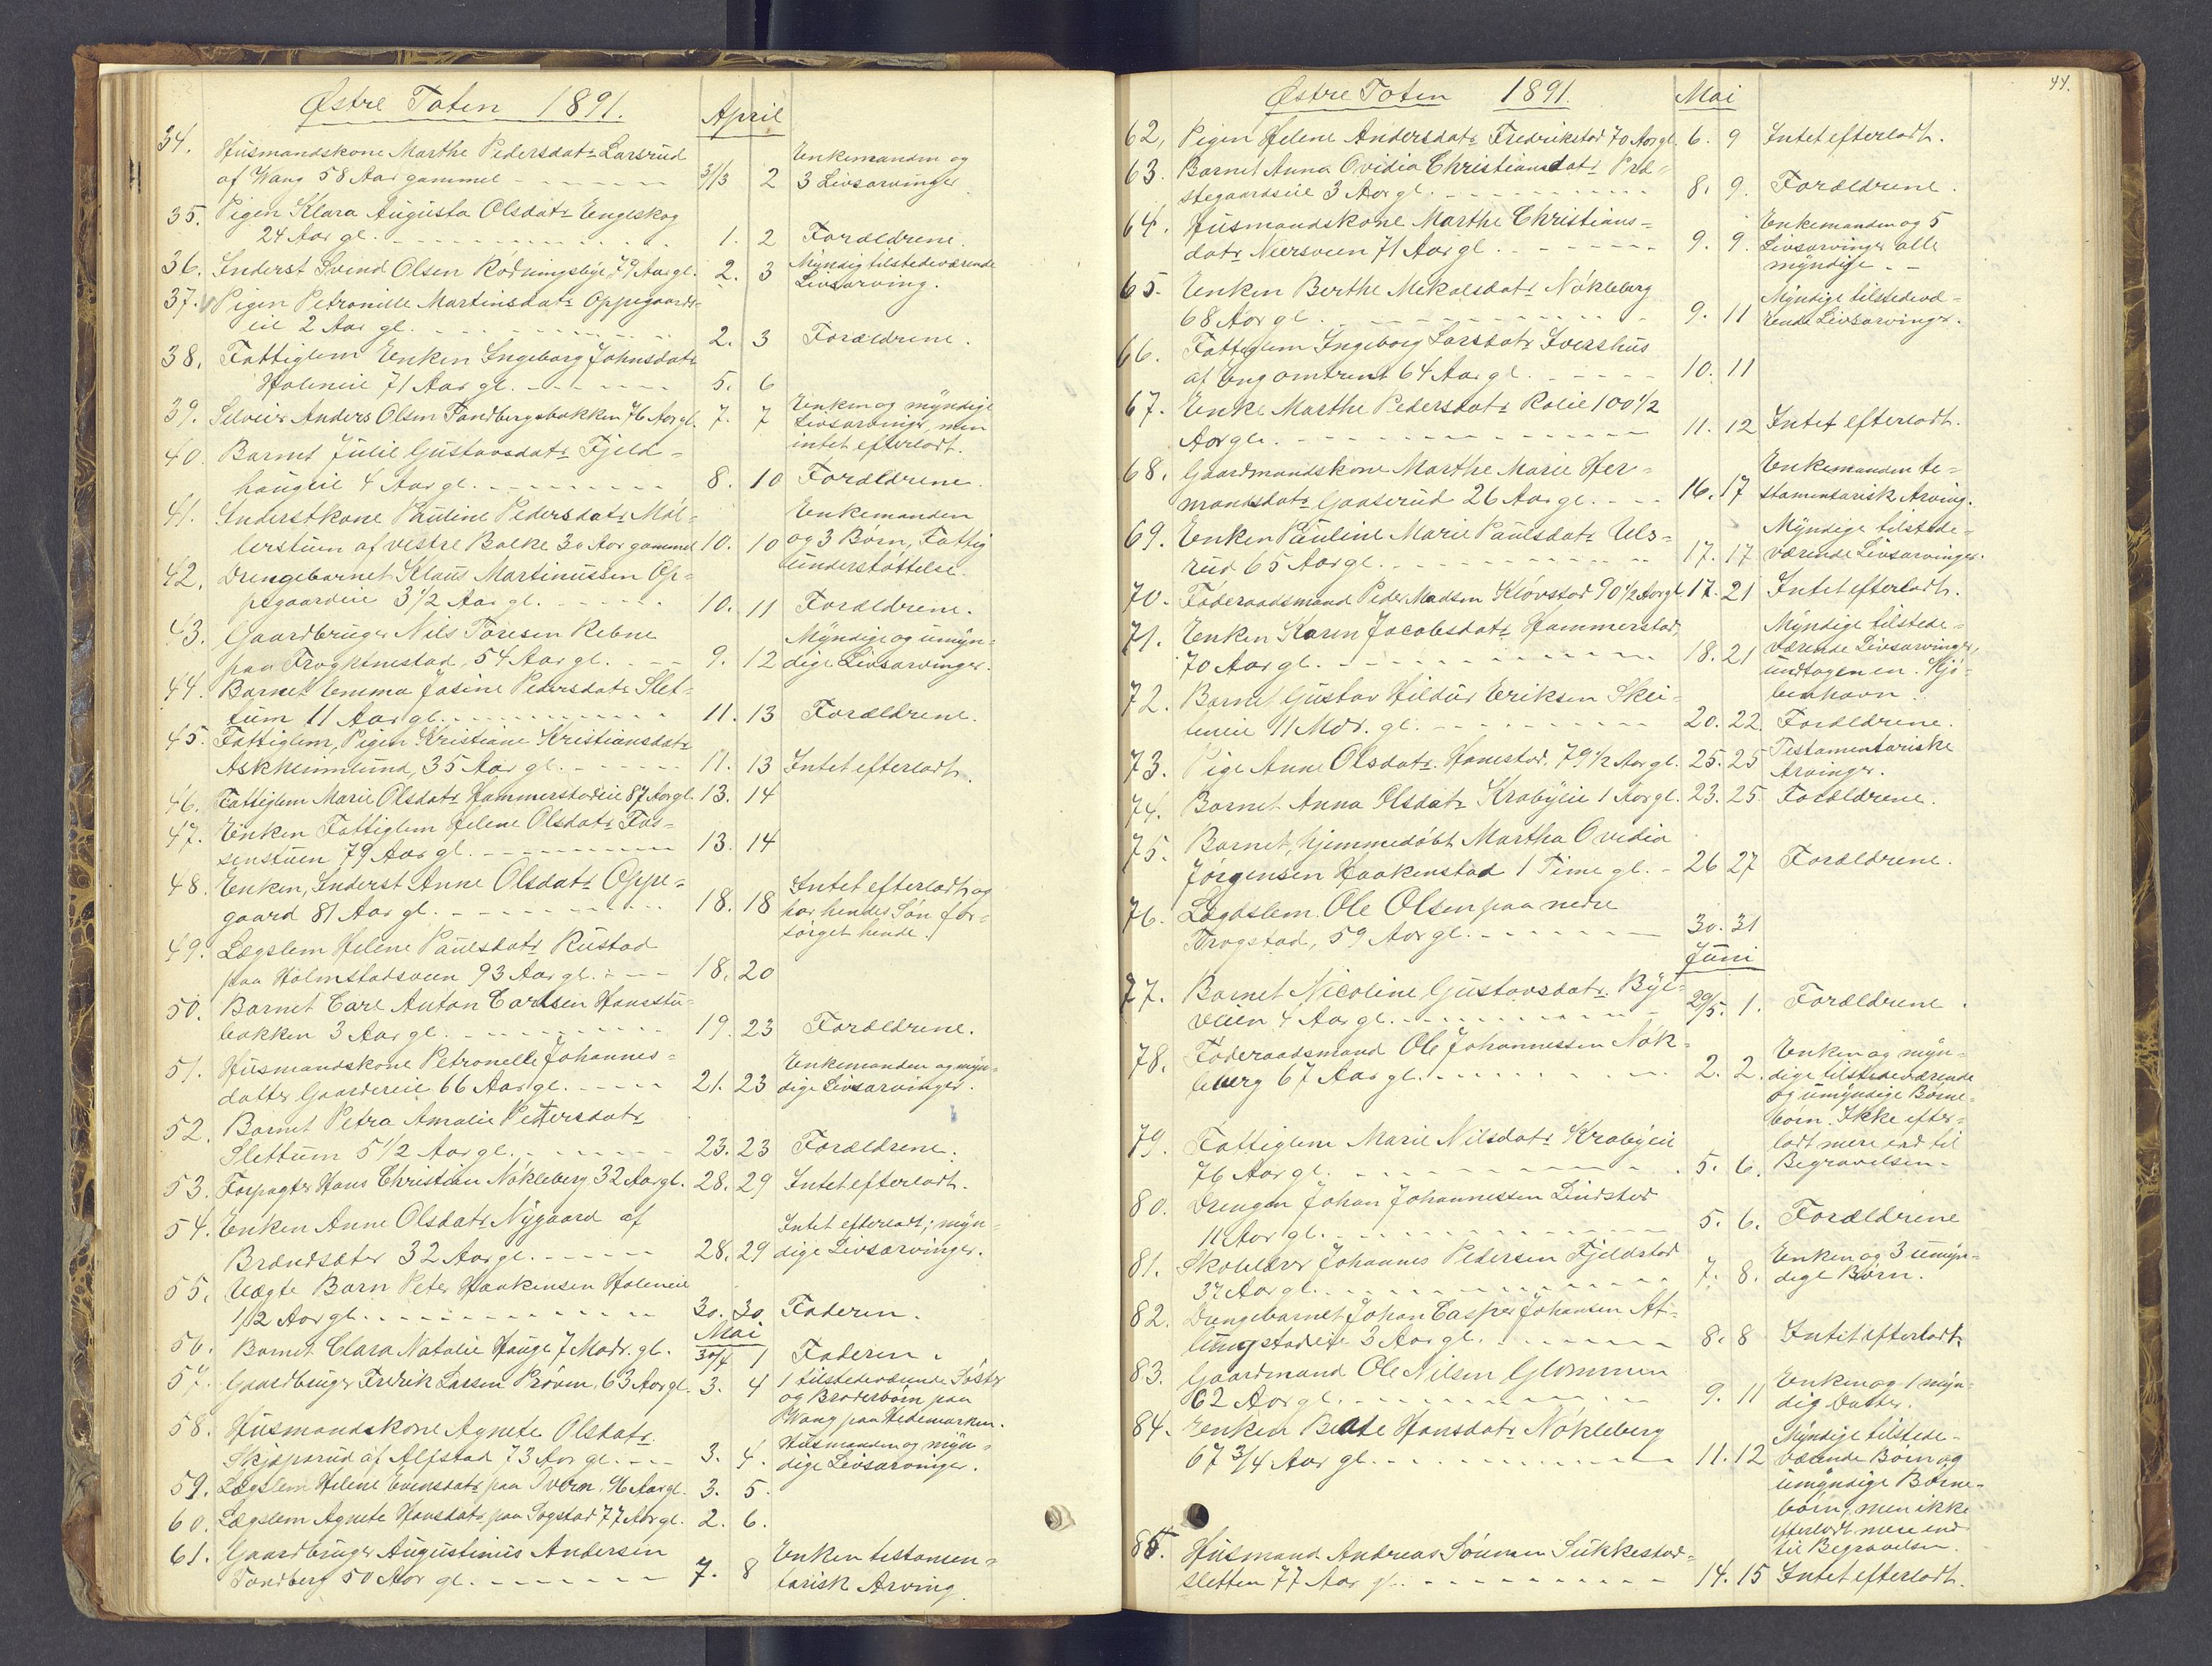 Østre Toten 1891.
April
34. Husmandskone Marthe Pedersdatr Larsrud
af Wang 58 Aar gammel 31/3 2 Enkemanden og
3 Livsarvinger
35. Pigen Klara Augusta Olsdatr Engeskog
24 Aar gl. 1. 2 Forældrene.
36. Inderst Svend Olsen Rødningsbye, 79 Aar gl. 2. 3 Myndig tilstedeværende
Livsarving.
37. Pigen Petronille Martinsdatr Oppegaards-
eie 2 Aar gl. 2. 3 Forældrene.
38. Fattiglem Enken Ingeborg Johnsdatr
Holeneie 71 Aar gl. 5. 6
39. Selveier Anders Olsen Tandbergsbakken 76 Aar gl. 7. 7 Enken og myndige
Livsarvinger, men
intet efterladt.
40. Barnet Julie Gustavsdatr Fjeld-
haugeie 4 Aar gl. 8. 10 Forældrene.
41. Inderstkone Pauline Pedersdatr Møl-
lerstuen af vestre Balke 30 Aar gammel 10. 10 Enkemanden
og 3 Børn, Fattig
understøttelse.
42. Drengebarnet Klaus Martinussen Op-
pegaardeie 3 1/2 Aar gl. 10. 11 Forældrene.
43. Gaardbruger Nils Toresen Rebne
paa Frogkinestad, 54 Aar gl. 9. 12 Myndige og umyn-
dige Livsarvinger.
44. Barnet Emma Josine Pedersdatr Slet-
tum 11 Aar gl. 11. 13 Forældrene.
45. Fattiglem, Pigen Kristiane Kristiansdatr
Askheimlund, 35 Aar gl. 11. 13 Intet efterladt.
46. Fattiglem Marie Olsdatr Hammerstadeie 87 Aar gl. 13. 14
47. Enken Fattiglem Helene Olsdatr Fos-
senstuen 79 Aar gl. 13. 14
48. Enken, Inderst Anne Olsdatr Oppe-
gaard 81 Aar gl. 18. 18 Intet efterladt, og
har hendes Søn for-
sørget hende.
49. Lægslem Helene Paulsdatr Rustad
paa Holmstadsveen 93 Aar gl. 18. 20
50. Barnet Carl Anton Carlsen Hansstu-
bakken 3 Aar gl. 19. 23 Forældrene.
51. Husmandskone Petronelle Johannes-
datter Gaardereie 66 Aar gl. 21. 23 Enkemanden og myn-
dige Livsarvinger.
52. Barnet Petra Amalie Pettersdatr
Slettum 5 1/2 Aar gl. 23. 23 Forældrene.
53. Forpagter Hans Christian Nøkleberg 32 Aar gl. 28. 29 Intet efterladt.
54. Enken Anne Olsdatr Nygaard af
Brændsæter 32 Aar gl. 28. 29 Intet efterladt; myn-
dige Livsarvinger.
55. Uægte Barn Peter Haakensen Holeneie
1/12 Aar gl. 30. 30. Faderen.
Mai
56. Barnet Clara Natalie Hauge 7 Madr. gl. 30/4 1 Faderen.
57. Gaardbruger Fredrik Larsen Prøven, 63 Aar gl. 3. 4 1 tilstedeværende Søster
og Broderbørn paa
Wang paa Hedemarken.
58. Husmandskone Agnete Olsdatr
Skjøparud af Alfstad 73 Aar gl. 3. 4. Husmanden og myn-
dige Livsarvinger.
59. Lægslem Helene Evensdatr paa Tveen, 96 Aar gl. 3. 5.
60. Lægslem Agnete Hansdatr paa Sogstad 77 Aar gl. 2. 6.
61. Gaardbruger Augustinus Andersen
Tandberg 50 Aar gl. 7. 8 Enken testamen-
tarisk Arving.
44.
Østre Toten 1891.
Mai
62. Pigen Helene Andersdatr Fredrikstad 70 Aar gl. 6. 9 Intet efterladt.
63. Barnet Anna Ovidia Christiansdatr Præ-
stegaardseie 3 Aar gl. 8. 9. Forældrene.
64. Husmandskone Marthe Christians-
datr Nersveen 71 Aar gl. 9. 9. Enkemanden og 5
Livsarvinger alle
myndige.
65. Enken Berthe Mikalsdatr Nøkleberg
68 Aar gl. 9. 11 Myndige tilstedevæ-
rende Livsarvinger.
66. Fattiglem Ingeborg Larsdatr Ivershus
af Eng omtrent 64 Aar gl. 10. 11
67. Enke Marthe Pedersdatr Roleie 100 1/2
Aar gl. 11. 12 Intet efterladt.
68. Gaardmandskone Marthe Marie Her-
mandsdatr Gaaserud 26 Aar gl. 16. 17 Enkemanden te-
stamentarisk Arving.
69. Enken Pauline Marie Paulsdatr Uls-
rud 65 Aar gl. 17. 17 Myndige tilstede-
værende Livsarvinger.
70. Føderaadsmand Peder Madsen Kløvstad 90 1/2 Aar gl. 17. 21 Intet efterladt.
71. Enken Karen Jacobsdatr Hammerstad,
70 Aar gl. 18. 21 Myndige tilstede-
værende Livsarvinger,
undtagen en i Kjø-
benhavn.
72. Barnet Gustav Hildus Eriksen Skei-
teneie 11 Mdr. gl. 20. 22. Forældrene.
73. Pige Anne Olsdatr. Hanestad, 79 1/2 Aar gl. 25. 25 Testamentariske
Arvinger.
74. Barnet Anna Olsdatr Krabyeie 1 Aar gl. 23. 25. Forældrene.
75. Barnet, hjemmedøbt Martha Ovidia
Jørgensen Haakenstad 1 Time gl. 26 27 Forældrene.
76. Lægdslem. Ole Olsen paa nedre
Trogstad, 59 Aar gl. 30. 31
Juni
77. Barnet Nicoline Gustavsdatr. Bye-
veien 4 Aar gl. 29/5. 1. Forældrene.
78. Føderaadsmand Ole Johannessen Nøk-
leberg 67 Aar gl. 2. 2. Enken og myn-
dige tilstedeværende
og umyndige Børne-
børn. Ikke efter-
ladt mere end til
Begravelsen.
79. Fattiglem Marie Nilsdatr Krabyeie
76 Aar gl. 5. 6.
80. Drengen Johan Johannessen Lindstad
11 Aar gl. 5. 6. Forældrene
81. Skolelærer Johannes Pedersen Fjeldstad
37 Aar gl. 7. 8. Enken og 3 umyn-
dige Børn.
82. Drengebarnet Johan Casper Johansen At-
lungstadeie 3 Aar gl. 8. 8 Intet efterladt
83. Gaardmand Ole Nilsen Glommen
62 Aar gl. 9. 11 Enken og 1 myn-
dig Datter.
84. Enken Beate Hansdatr Nøkleberg
67 3/4 Aar gl. 11. 12 Myndige tilstede-
værende Børn og
umyndige Børne-
børn, men ikke
efterladt mere end
til Begravelsen.
85. Husmand Andreas Sørensen Sukkestad-
sletten 77 Aar gl. 14. 15 Intet efterladt.